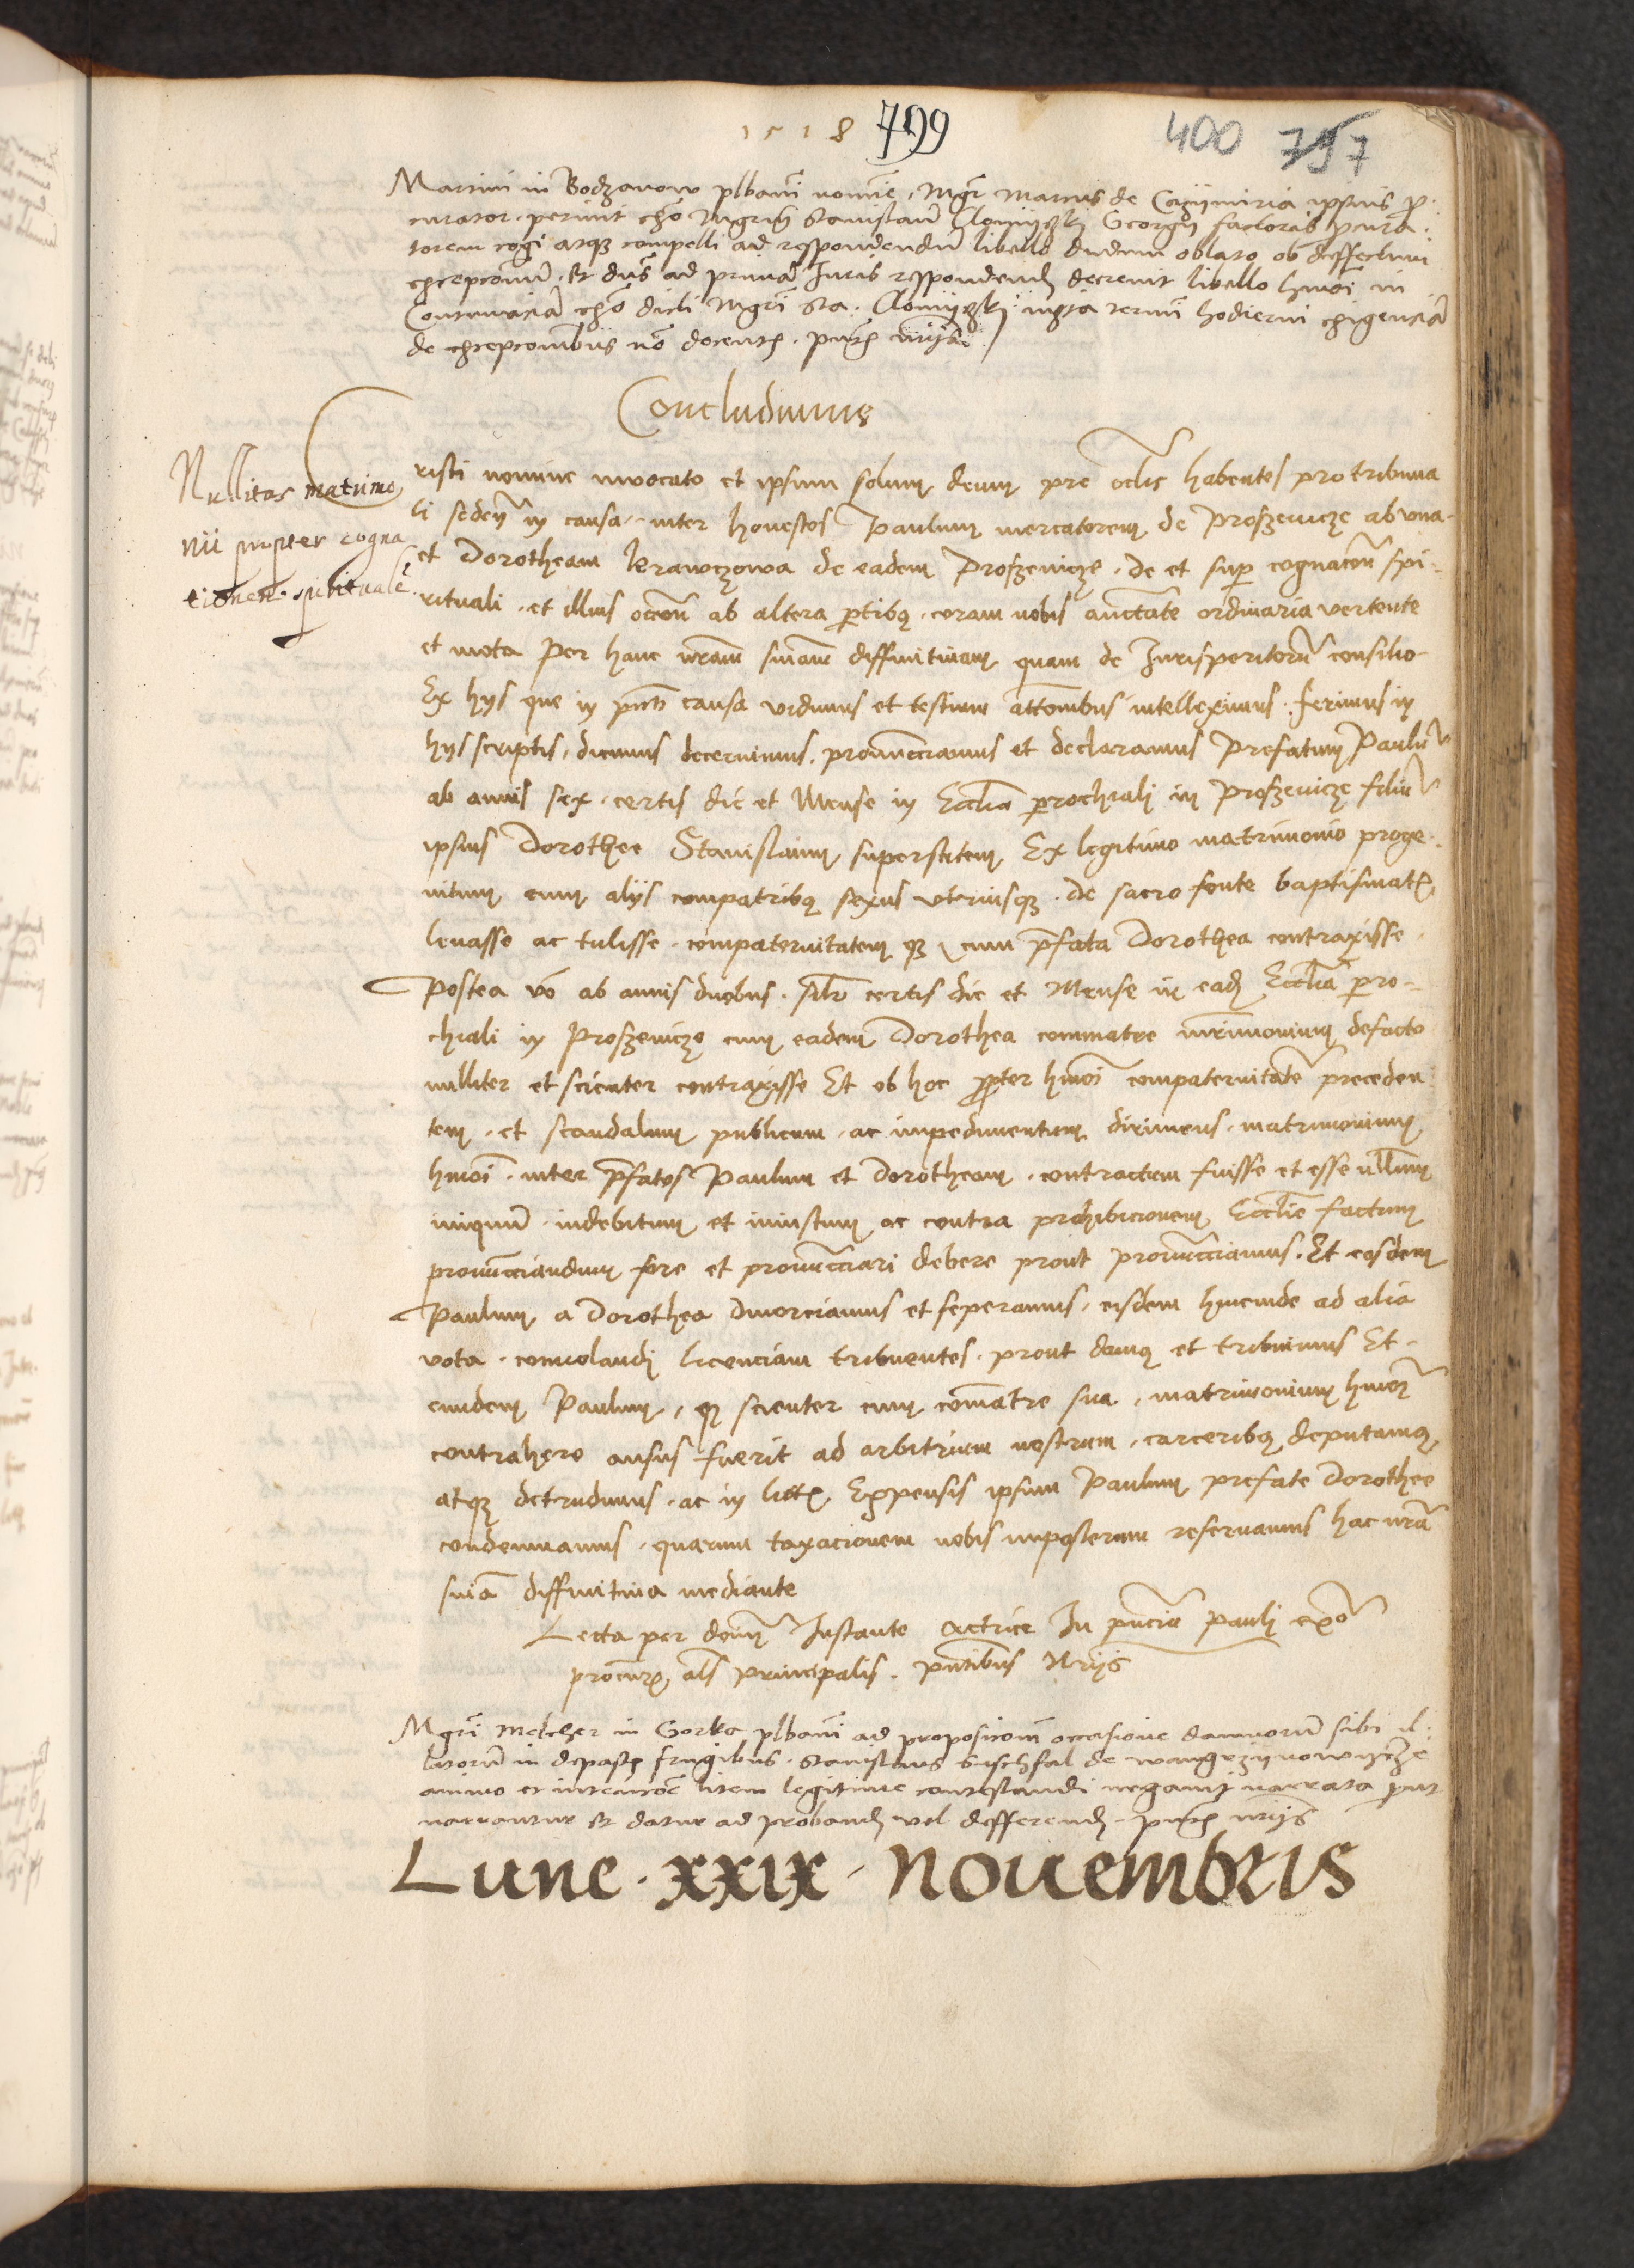 1518 799 400 797
Martini in Bodzanow plbani noīe Mgr Martinus de Cazimiria ipsius p̄
curator petiuit Mgrm̄ Stanislaū Georgy factoris
torem cogi atqȝ compelli ad respondendū libello dudum oblato ob deffectum
excepcionū Et dn̄s ad primā Iuris respondend decreuit libello hmōi in
Contumaciā dicti Mgrī Sta. iuxta termī hodierni exigenciā
de excepconibus nō docent
Concludimus
Nullitas matrimo
nii propter cogna
tionem spiritualē
Cristi nomine inuocato et ipsum solum deum pre oclis habentes pro tribuna
li seden̄ in causa inter honestos Paulum mercatorem de Proszenicze ab vna
et Dorotheam krawczowa de eadem Proszenicze de et sup cognacōn spi
rituali et illius occōn ab altera ptibȝ coram nobis auctāte ordinaria vertente
et mota Per hanc nrām snīam diffinitiuam quam de Iurisperitorū consilio
Ex hys que in pnti causa vidimus et testium attōnibus intelleximus ferimus in
hys scriptis dicimus decernimus pronuncciamus et declaramus Prefatum Paulū
ab annis sex certis die et Mense in Ecclīa prochiali in Proszenicze filiū
ipsius Dorothee Stanislaum superstitem Ex legitimo matrimonio proge
nitum cum alys compatribȝ sexus vtriusqȝ de sacro fonte baptismatꝭ
leuasse ac tulisse compaternitatem qȝ cum pfata Dorothea contraxisse
Postea vō ab annis duobus silr certis die et Mense in ead Ecclīa pro
chiali in Proszenicze cum eadem Dorothea commatre mrimonium defacto
nulliter et scienter contraxisse Et ob hoc ppter hmōi compaternitatē preceden
tem et scandalum publicum ac impedimentum dirimens matrimonium
hmōi inter pfatos Paulum et Dorotheam contractum fuisse et esse nllum
iniquū indebitum et iniustum ac contra prohibicionem Ecclīe factum
pronuncciandum fore et pronuncciari debere prout pronuncciamus Et eosdem
Paulum a Dorothea diuorciamus et seperamus eisdem hincinde ad alia
vota conuolandi licenciam tribuentes prout damȝ et tribuimus Et
eundem Paulum qȝ scienter cum comatre sua matrimonium hmōi
contrahere ausus fuerit ad arbitrium nostrum carceribȝ deputamȝ
atqȝ detrudimus ac in littꝭ Expensis ipsum Paulum prefate Dorothee
condemnamus quarum taxacionem nobis imposterum reseruamus hac nrā
snīa diffinitiua mediante
Lecta per dnm̄ Instante actrice In pncia Pauli
als principalis pntibus Nrys
Mgri Melcher in Gorka plbani ad proposicōm occasione damnorū sibi il
latorū in depastꝭ frugibus Stanislaus de
animo et intencōe litem legitime contestandi negauit narrata prout
narrantur Et datur ad proband vel defferend
Lune xxix Nouembris